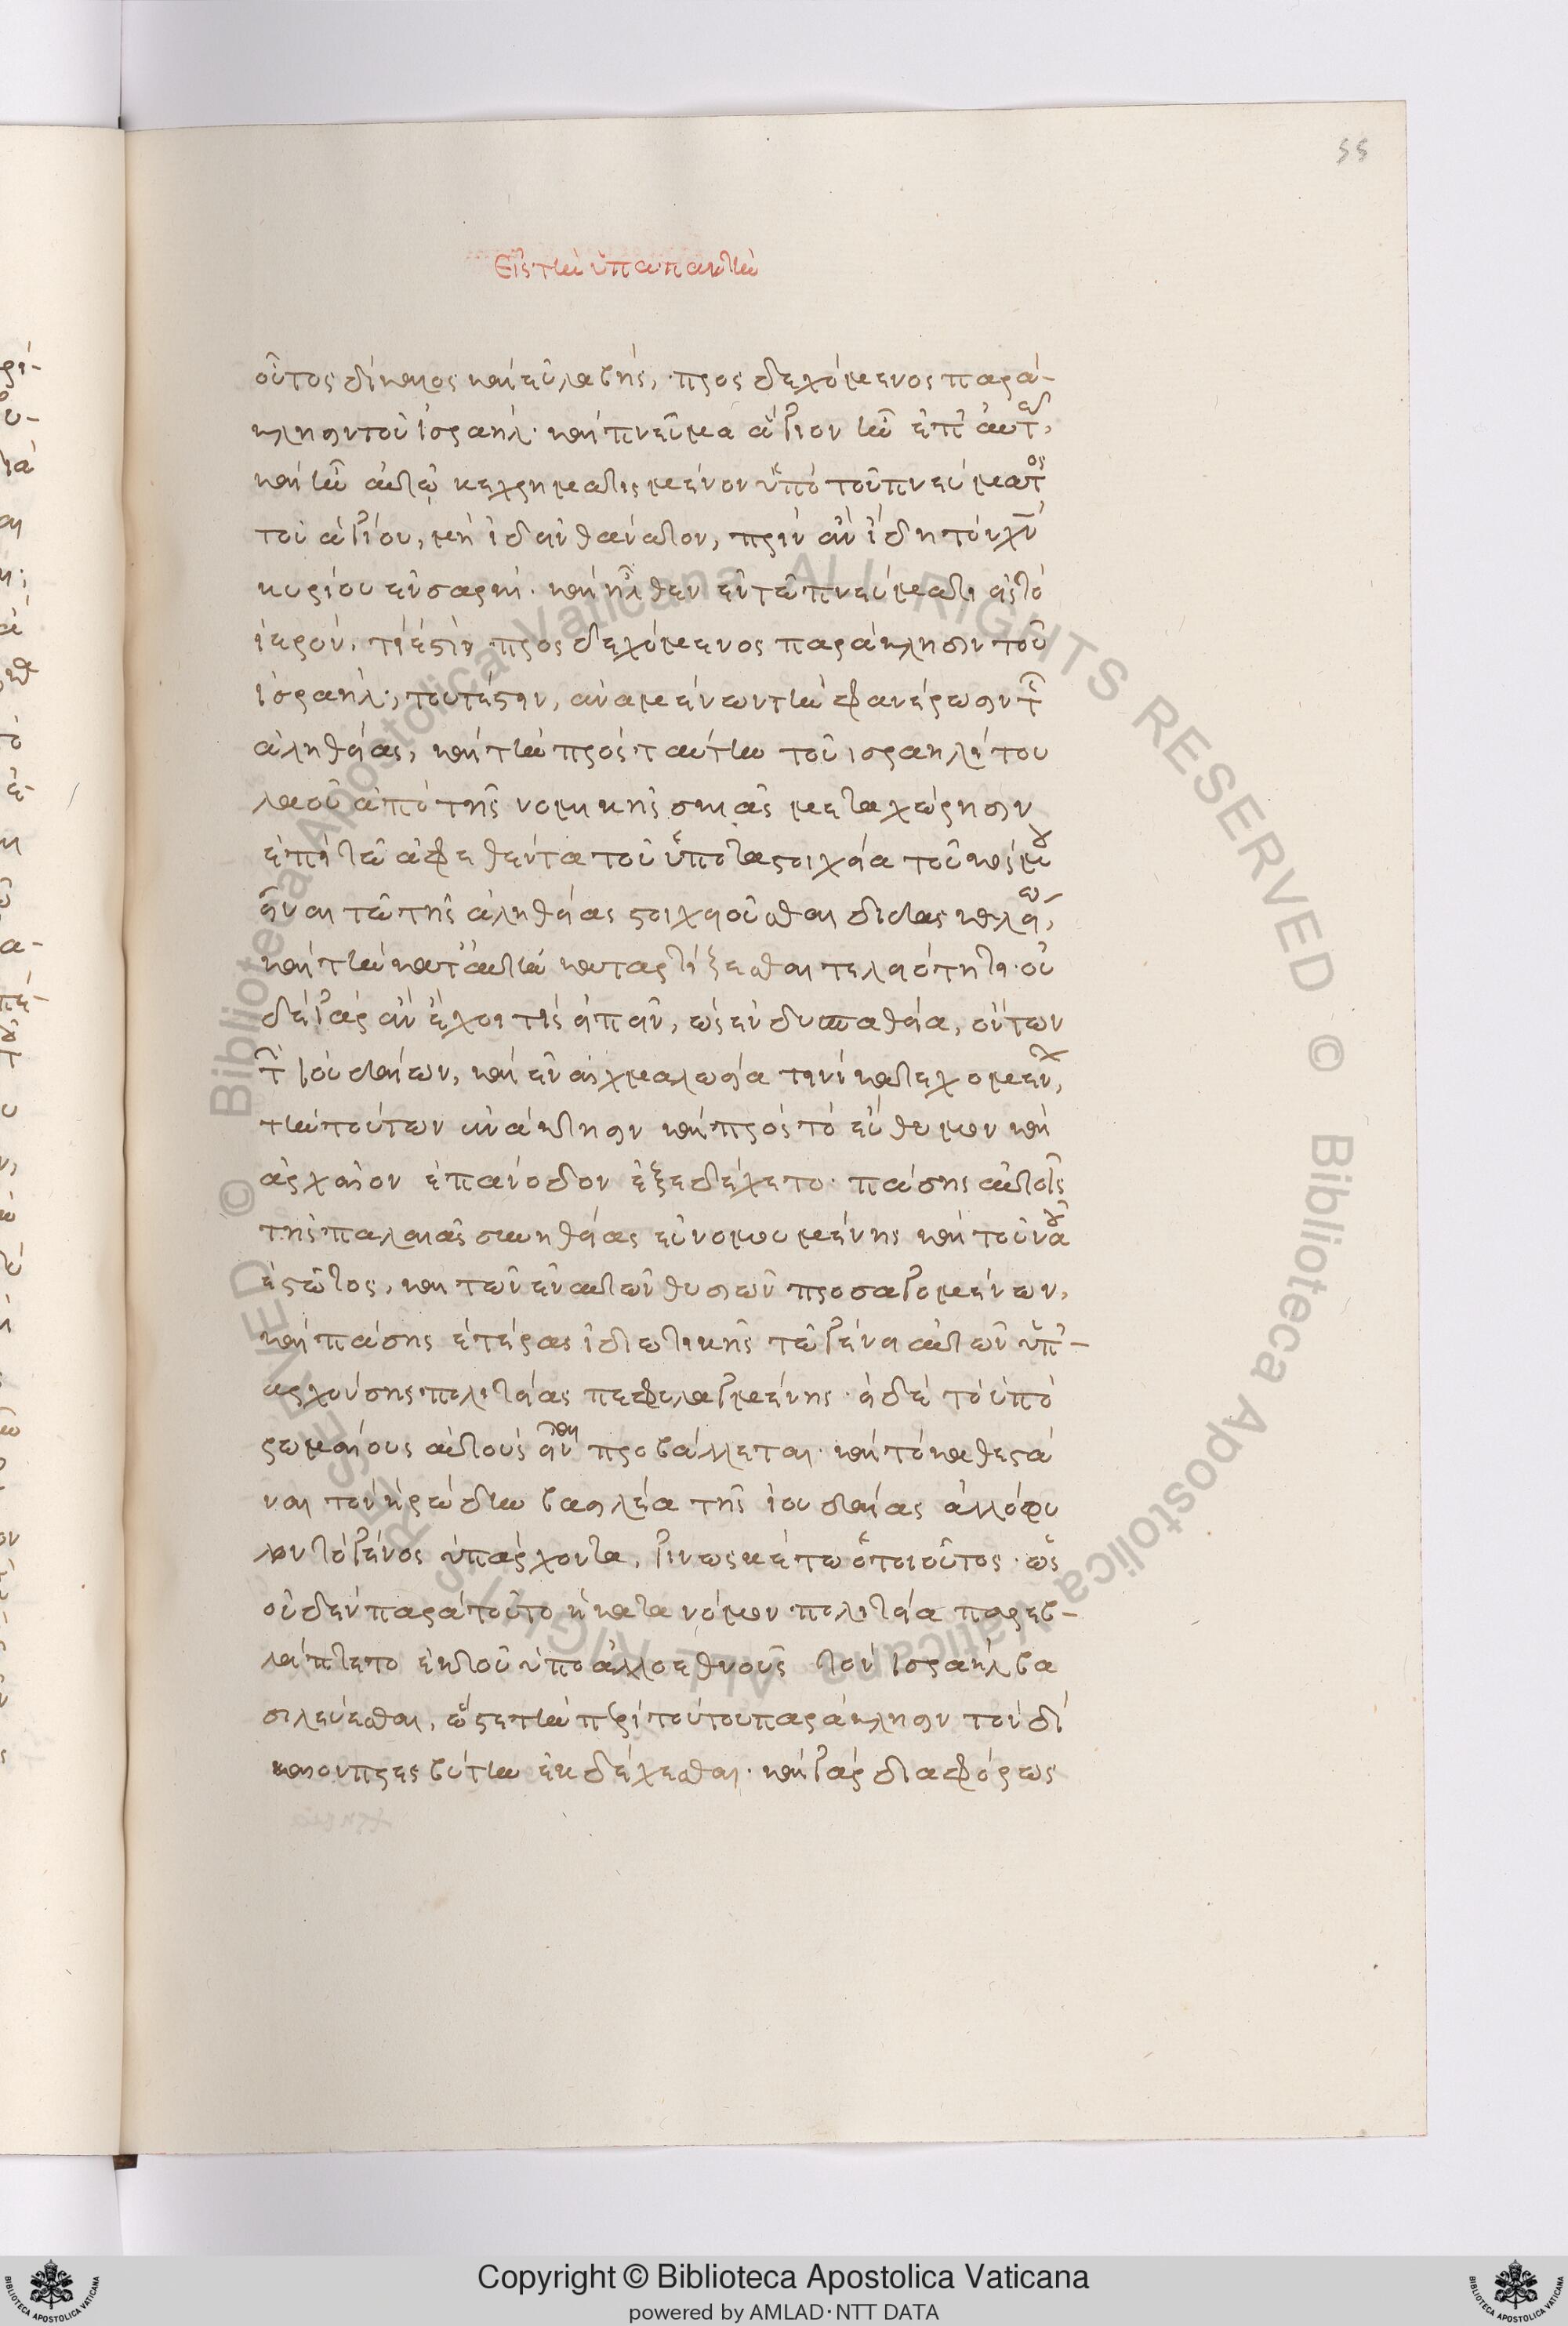 55
Εἰς τὴν ὑπαπαντὴν
οὗτος δίκαιος καὶ εὐλαβής, προσδεχόμενος παρά-
κλησιν τοῦ ἰσραήλ· καὶ πνεῦμα ἅγιον ἦν ἐπ' αὐτ,
καὶ ἦν αὐτῷ κεχρηματισμένον ὑπὸ τοῦ πνεύματος
τοῦ ἁγίου, μὴ ἰδεῖν θάνατον, πρὶν ἂν ἴδη τὸν χν
κυρίου ἐν σαρκί· καὶ ἦλθεν ἐν τῶ πνεύματι εἰς τὸ
ἱερόν. τί ἐστὶν προσδεχόμενος παράκλησιν τοῦ
ἰσραήλ; τουτέστιν, ἀναμένων τὴν φανέρωσιν τῆς
ἀληθείας, καὶ τὴν πρὸς ταύτην τοῦ ισραηλίτου
λαοῦ ἀπὸ τῆς νομικῆς σκιᾶς μεταχώρησιν
ἐπὶ τῶ ἀφεθέντα τοῦ ὑπὸ τα στοιχεία τοῦ κόσμου
εἶναι τῶ τῆς ἀληθείας στοιχειοῦσθαι διδασκαλείω,
καὶ τὴν κατ' αὐτὴν καταρτίζεσθαι τελειότητι· οὐ
δὲ γὰρ ἂν ἔχοι τίς εἰπεῖν, ὡς ἐν δυσπαθεία, ὄντων
τῶν ἰουδαίων, καὶ ἐν αἰχμαλωσία τινὶ κατεχομένων,
τὴν τούτων ἀνάκτησιν καὶ πρὸς τὸ εὔθυμον καὶ
ἀρχαῖον ἐπάνοδον ἐξεδέχετο· πάσης αὐτοῖς
τῆς παλαιᾶς συνηθείας εὐνομουμένης καὶ τοῦ ναοῦ
ἑστῶτος, και τῶν ἐν αυτῶ θυσιῶν προσαγομένων,
καὶ πάσης ἑτέρας ἰδιωτικῆς τῶ γένει αὐτῶν ὑπ-
αρχούσης πολιτείας πεφυλαγμένης· εἰ δὲ τὸ ὑπὸ
ῥωμαίους αὐτοὺς εἶναι προβάλλεται· καὶ τὸ καθεστά
ναι τὸν ἡρώδην βασιλέα τῆς ἰουδαίας ἀλλόφυ
λον τὸ γένος ὑπάρχοντα, γινωσκέτω ὁ τοιοῦτος· ὡς
οὐδὲν παρὰ τοῦτο ἡ κατα νόμον πολιτεία παρεβ-
λάπτετο ἐκ τοῦ ὑπο ἀλλοεθνοῦς τὸν ἰσραὴλ βα
σιλεύεσθαι, ὥστε τὴν περὶ τούτου παράκλησιν τὸν δί
καιον πρεσβύτην ἐκδέχεσθαι· καὶ γὰρ διαφόρως
Copyright © Biblioteca Apostolica Vaticana
powered by AMLAD·NTT DATA